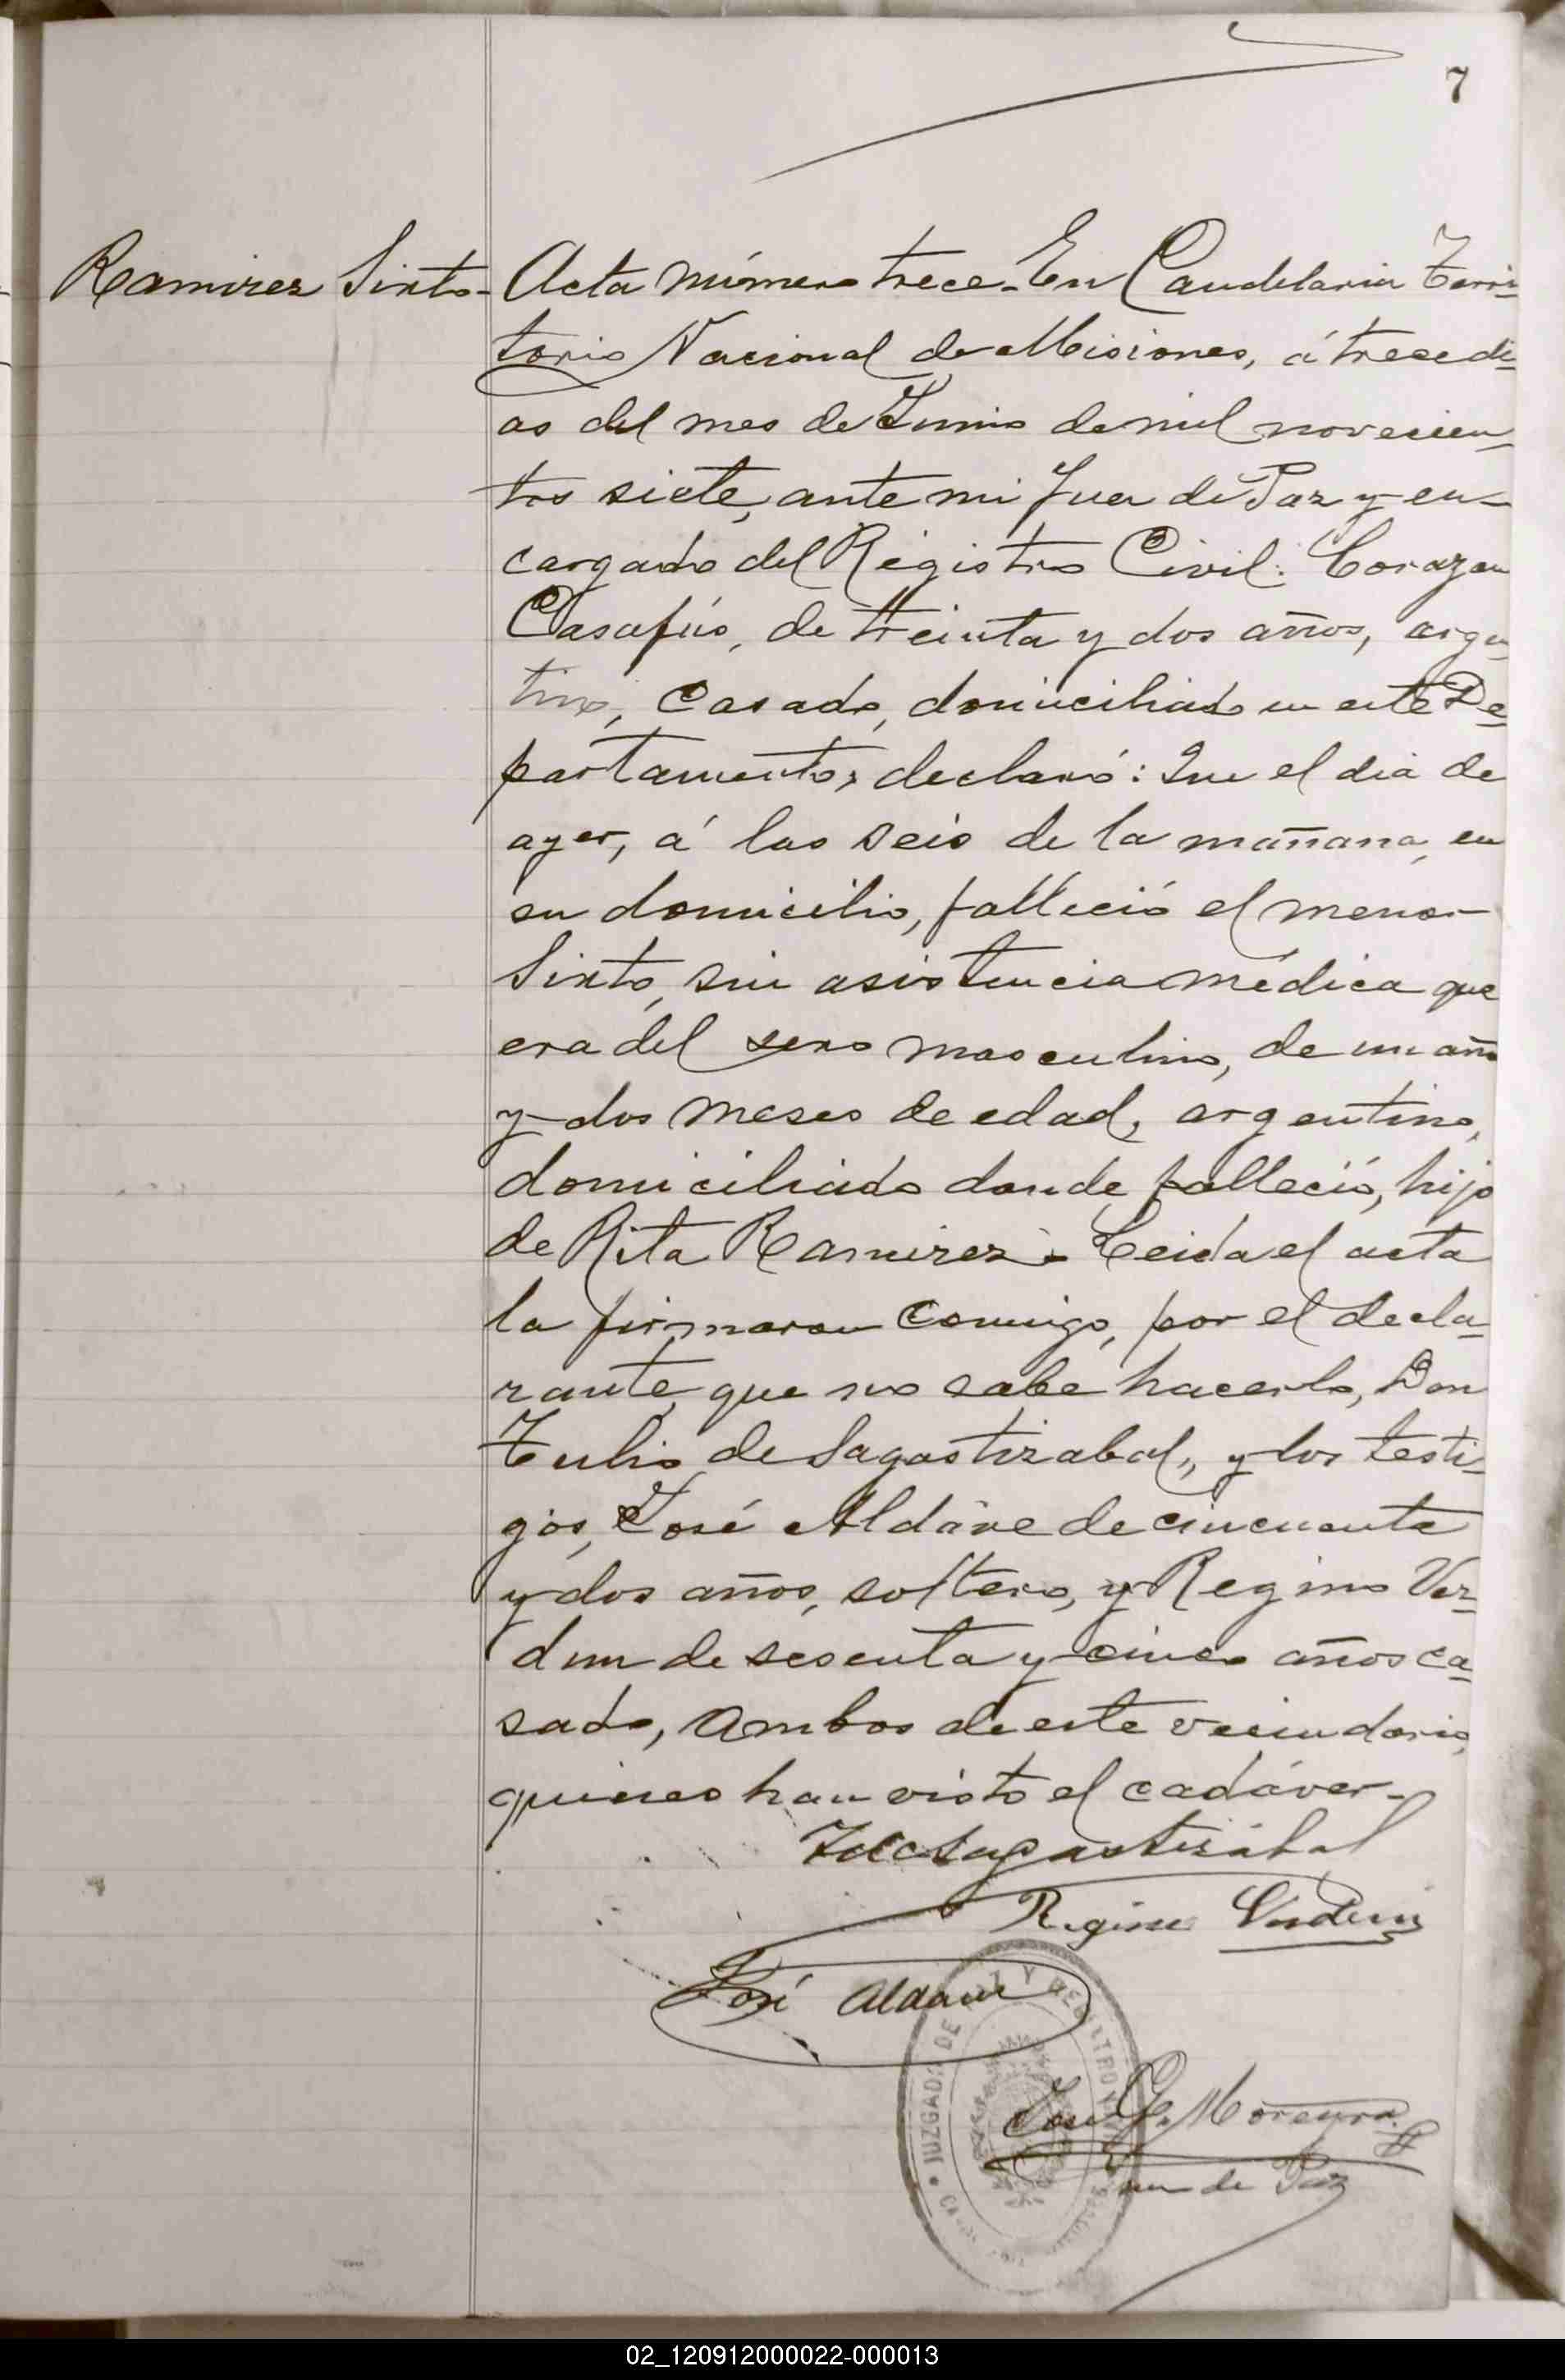 7
Ramirez Sixto-
Acta número trece. En Candelaria Terri-
torio Nacional de Misiones, á trece di-
as del mes de Junio de mil novecien-
tos siete, ante mi Juez de Paz y en-
cargado del Registro Civil: Corazon
Casafús, de treinta y dos años, argen-
tino, casado, domiciliado en este De-
partamento, declaró: Que el dia de
ayer, á las seis de la mañana, en
su domicilio, falleció el menor
Sixto, sin asistencia médica que
era del sexo masculino, de un año
y dos meses de edad, argentino,
domiciliado donde falleció, hijo
de Rita Ramirez.- Leida el acta
la firmaron conmigo, por el decla-
rante, que no sabe hacerlo, Don
Tulio de Sagastizabal, y los testi-
gos, José Aldáve de cincuenta
y dos años, soltero, y Regino Ver-
dun de sesenta y cinco años ca-
sado, ambos de este vecindario,
quienes han visto el cadáver.-
T de Sagastizábal
Regino Verdun
José Aldave
JUZGADO DE PAZ Y REGISTRO
José G. Moreyra
Juez de Paz
02_120912000022-000013